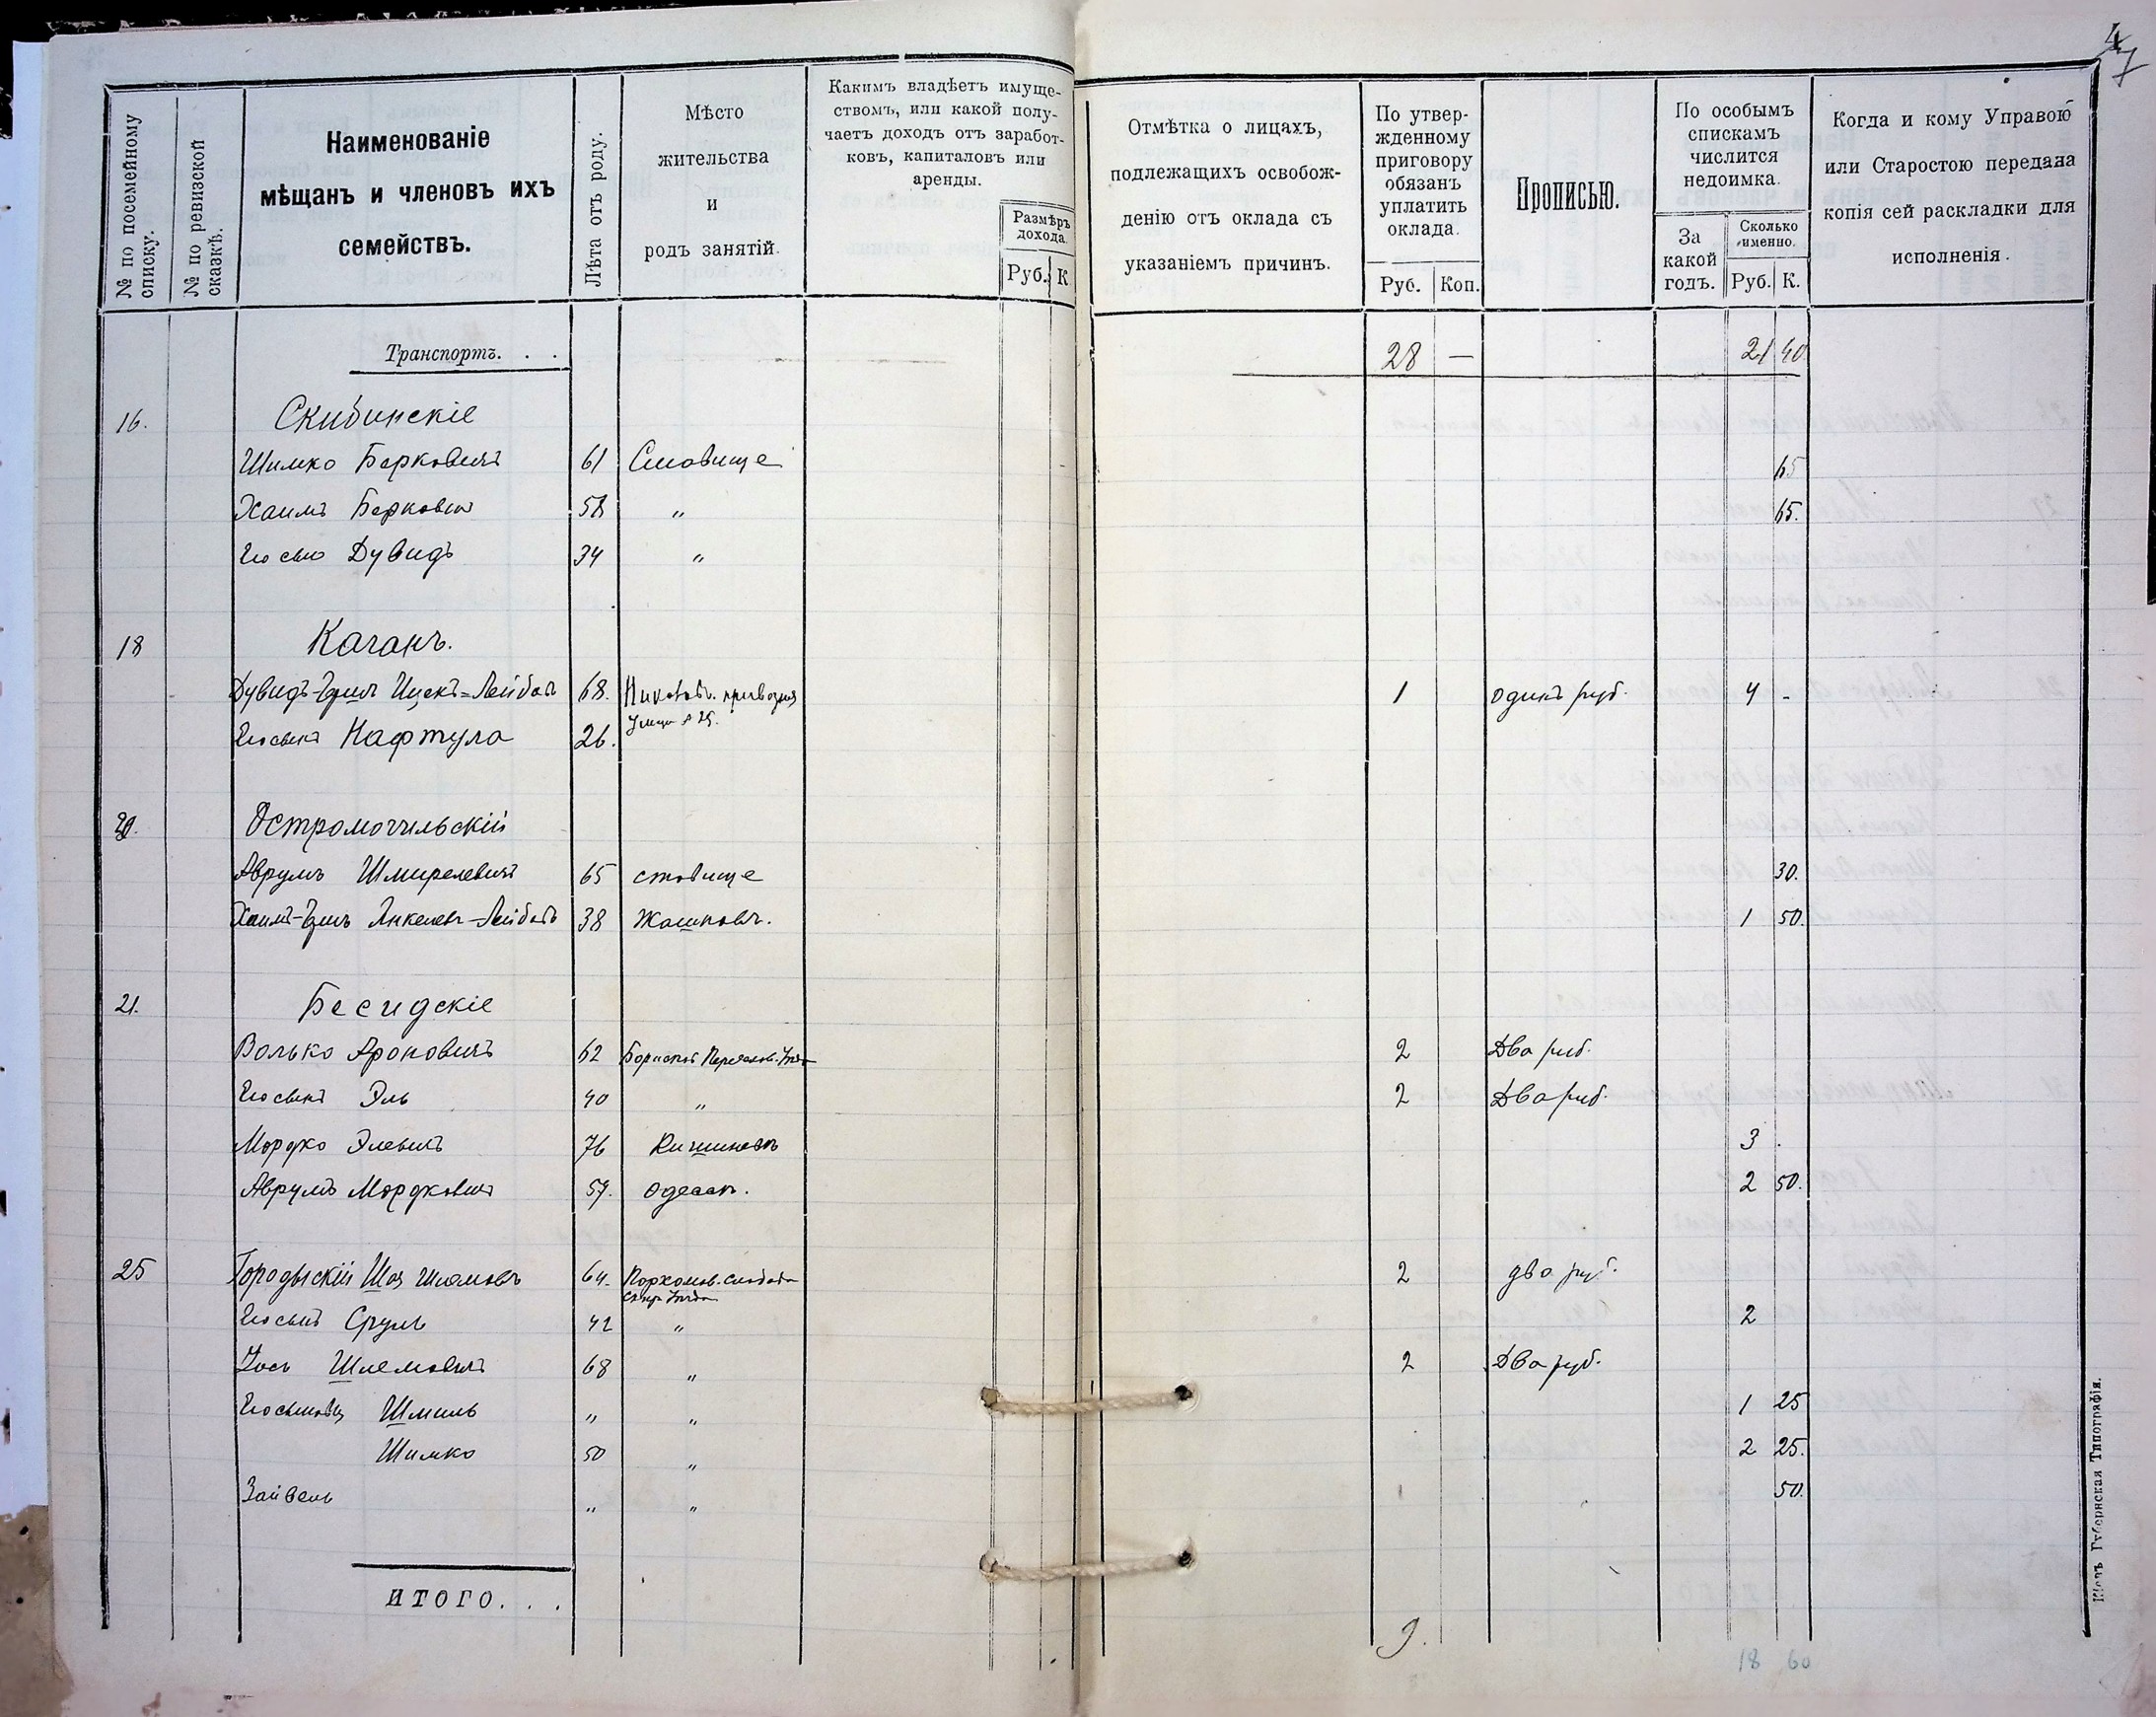 47
№ по посемейному списку.
№ по ревизской сказкѣ.
Наименованіе мѣщанъ и членовъ ихъ семействъ.
Лѣта отъ роду.
Мѣсто жительства и родъ занятій.
Какимъ владѣетъ имуще-
ствомъ, или какой полу-
чаетъ доходъ отъ заработ-
ковъ, капиталовъ или
аренды.
Размѣръ дохода.
Руб. К
Отмѣтка о лицахъ,
подлежащихъ освобож-
денію отъ оклада съ
указаніемъ причинъ.
По утвер-
жденному
приговору
обязанъ
уплатить
оклада.
Руб. Коп.
Прописью.
По особымъ
спискамъ
числится
недоимка.
За какой годъ.
Сколько именно.
Руб. К.
Когда и кому Управою
или Старостою передана
копія сей раскладки для
исполненія.
Транспортъ. . . 28 — 21 40
16. Скибинскіе
Шимко Берковичъ 61 Ставище 65
Хаимъ Берковичъ 58 " 65.
Его сынъ Дувидъ 34 "
18 Каганъ.
Дувидъ-Ершъ Ицекъ-Лейбов 68. 1 одинъ руб. 4 -
Его сынъ Нафтула 26.
20. Остромогильскій
Аврумъ Шмирелевичъ 65 ставище 30.
Хаимъ-Ершъ Янкелев-Лейбовъ 38 Жашковъ. 1 50.
21. Бесидскіе
Волько Ароновичъ 62 2 Два руб.
Его сынъ Эль 40 " 2 Два руб.
Мордко Элевичъ 76 Кишиневъ 3 .
Аврумъ Мордковичъ 57. Одесса. 2 50.
25 Городыскій Шая Шлемовъ 64. 2 два руб.
Его сынъ Сруль 42 " 2
Іось Шлемовичъ 68 " 2 Два руб.
Его сыновья Шмиль " " 1 25
Шимко 50 " 2 25.
Зайвель " " 50.
ИТОГО. . . 9. 18 60
Кіевъ Губернская Типографія.